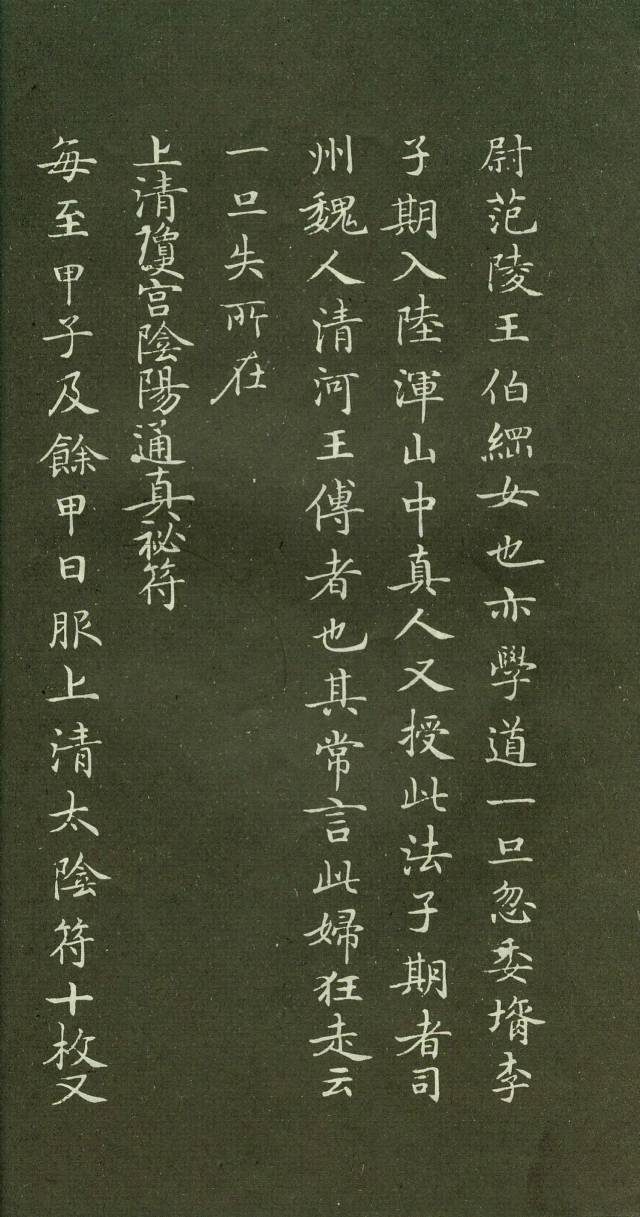 尉范陵王伯綱女也亦學道一旦忽委壻李
子期入陸渾山中真人又授此法子期者司
州魏人清河王傅者也其常言此婦狂走云
一旦失所在
上清瓊宮陰陽通真祕符
每至甲子及餘甲日服上清太陰符十枚又